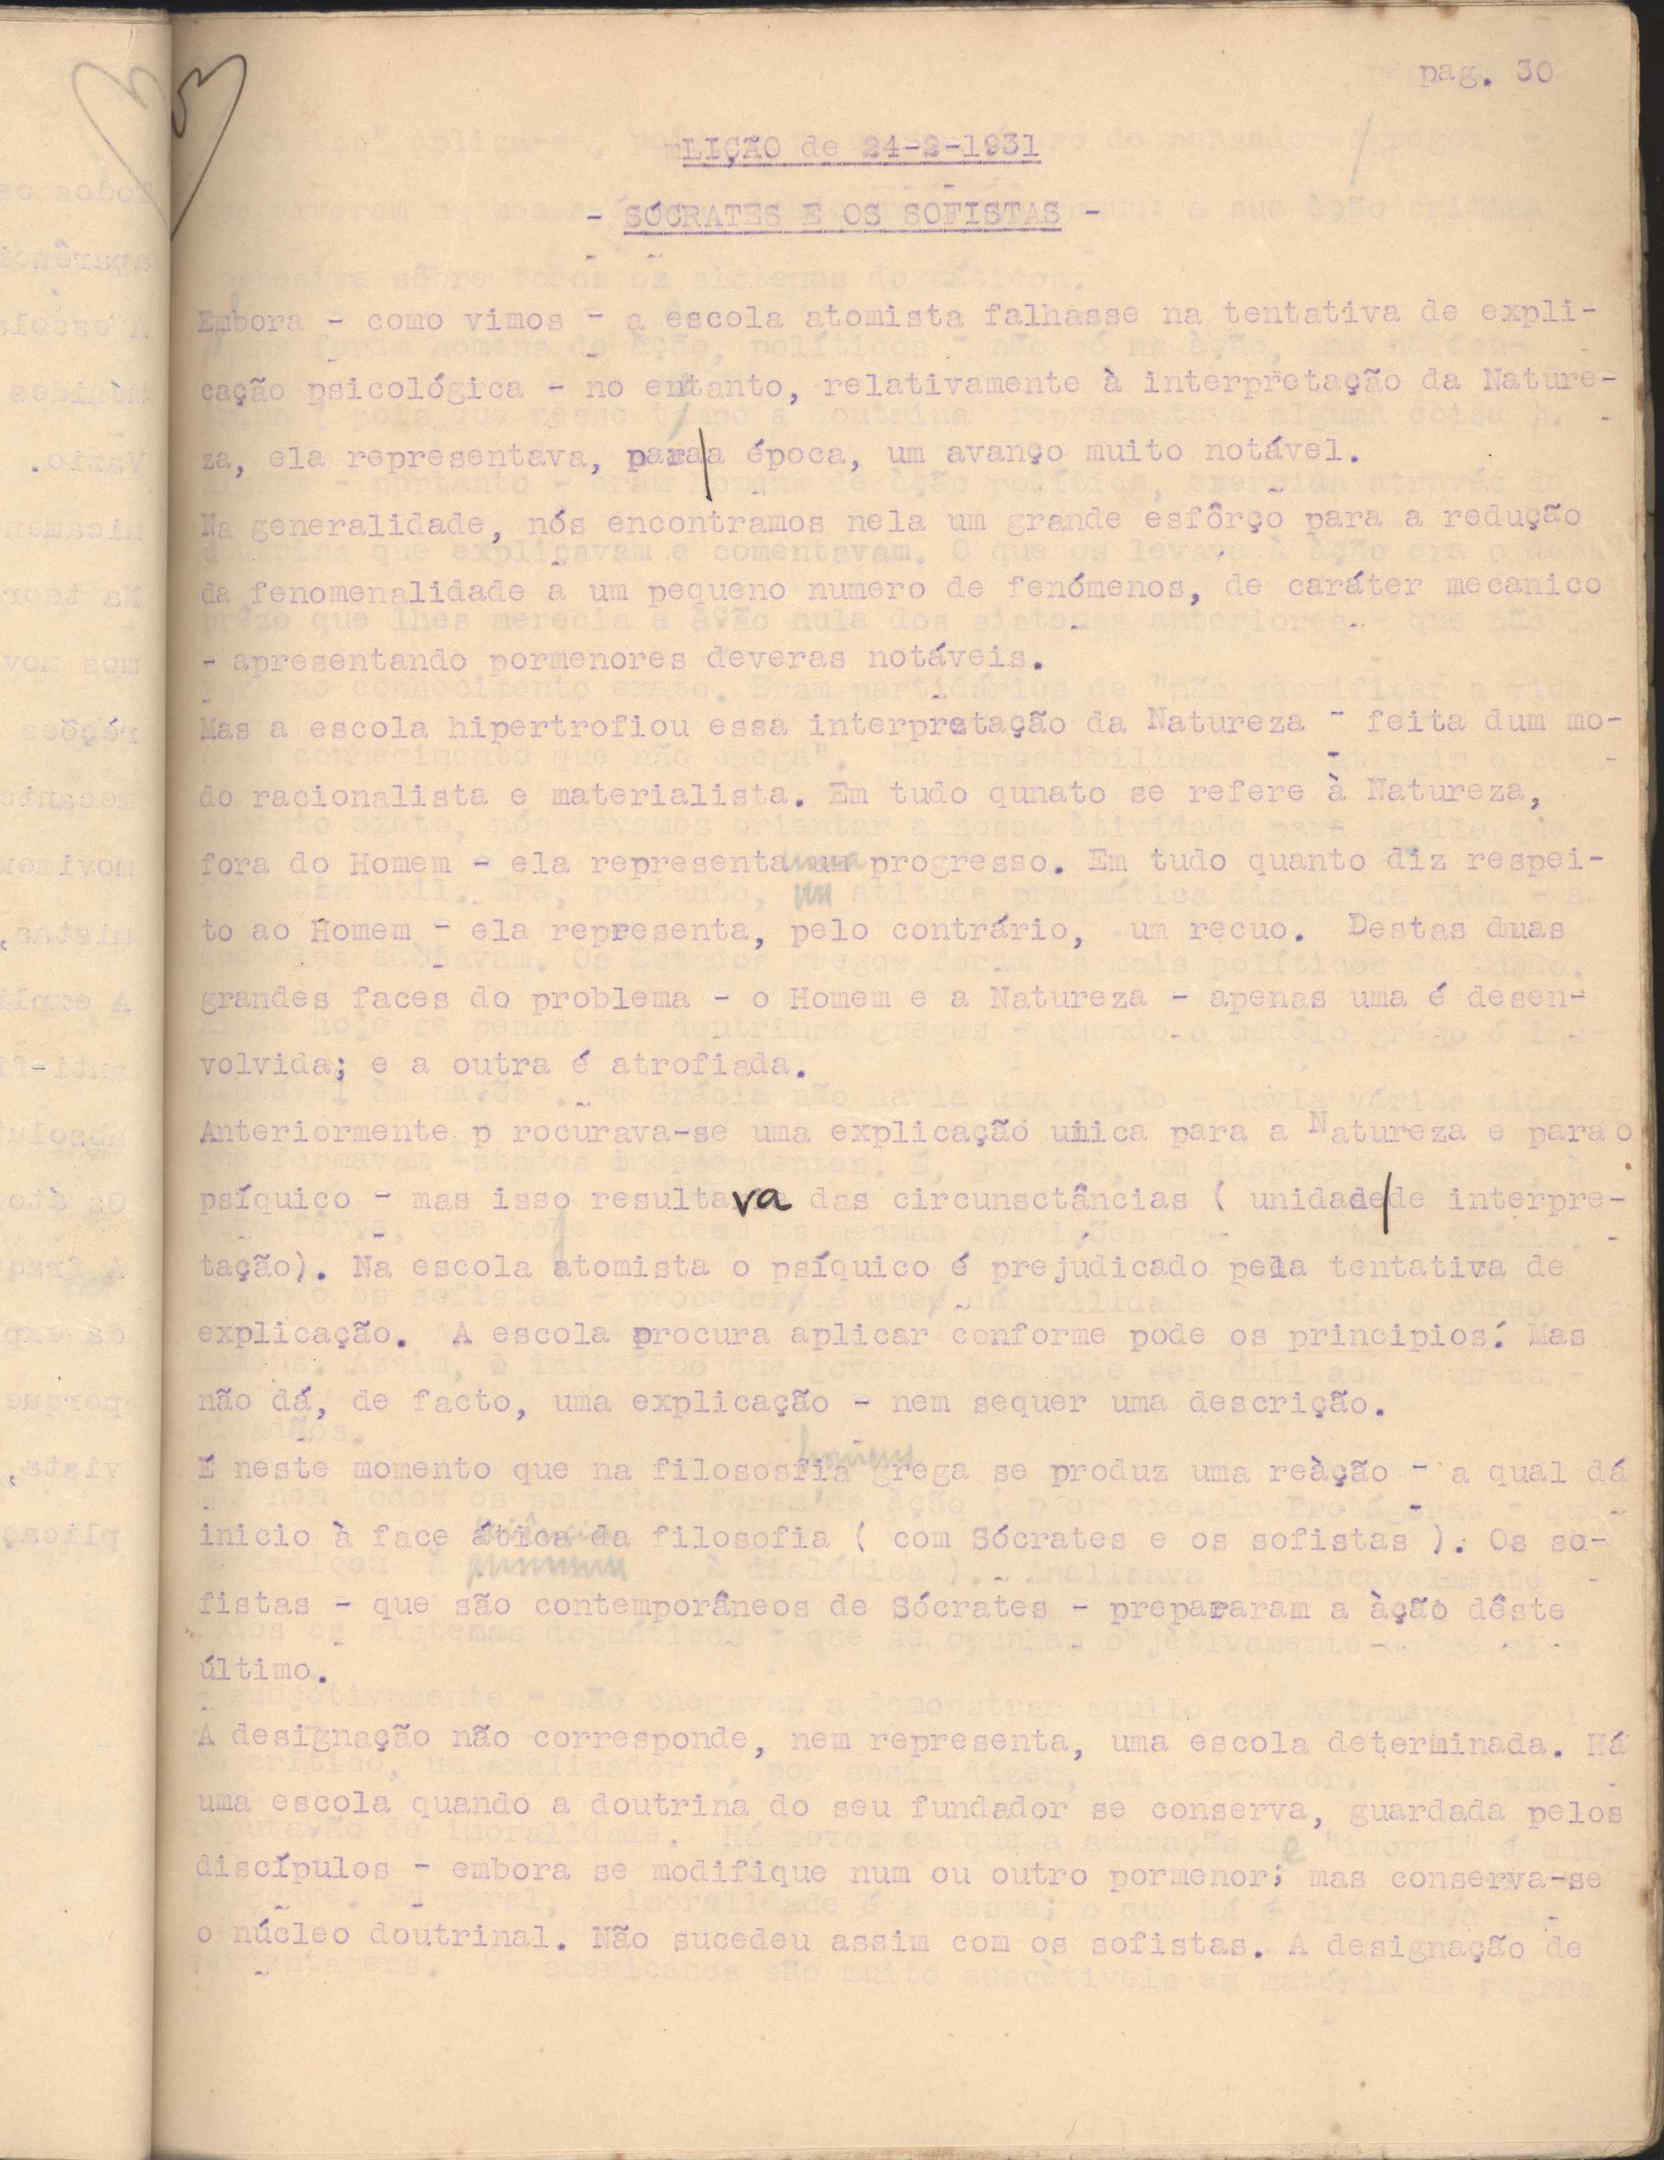 pag. 30
LIÇÃO de 24-2-1931
- SÓCRATES E OS SOFISTAS -
Embora - como vimos - a escola atomista falhasse na tentativa de expli-
cação psicológica - no entanto, relativamente à interpretação da Nature-
za, ela representava, para|a época, um avanço muito notável.
Na generalidade, nós encontramos nela um grande esfôrço para a redução
da fenomenalidade a um pequeno numero de fenómenos, de caráter mecanico
- apresentando pormenores deveras notáveis.
Mas a escola hipertrofiou essa interpretação da Natureza - feita dum mo-
do racionalista e materialista. Em tudo qunato se refere à Natureza,
fora do Homem - ela representa um progresso. Em tudo quanto diz respei-
to ao Homem - ela representa, pelo contrário, um recuo. Destas duas
grandes faces do problema - o Homem e a Natureza - apenas uma é desen-
volvida; e a outra é atrofiada.
Anteriormente p rocurava-se uma explicação unica para a Natureza e para o
psíquico - mas isso resultava das circunsctâncias ( unidade|de interpre-
tação). Na escola atomista o psíquico é prejudicado pela tentativa de
explicação. A escola procura aplicar conforme pode os principios. Mas
não dá, de facto, uma explicação - nem sequer uma descrição.
É neste momento que na filososfia grega se produz uma reàção - a qual dá
inicio à face ática da filosofia ( com Sócrates e os sofistas ). Os so-
fistas - que são contemporâneos de Sócrates - prepararam a àção dêste
último.
A designação não corresponde, nem representa, uma escola determinada. Há
uma escola quando a doutrina do seu fundador se conserva, guardada pelos
discípulos - embora se modifique num ou outro pormenor; mas conserva-se
o núcleo doutrinal. Não sucedeu assim com os sofistas. A designação de